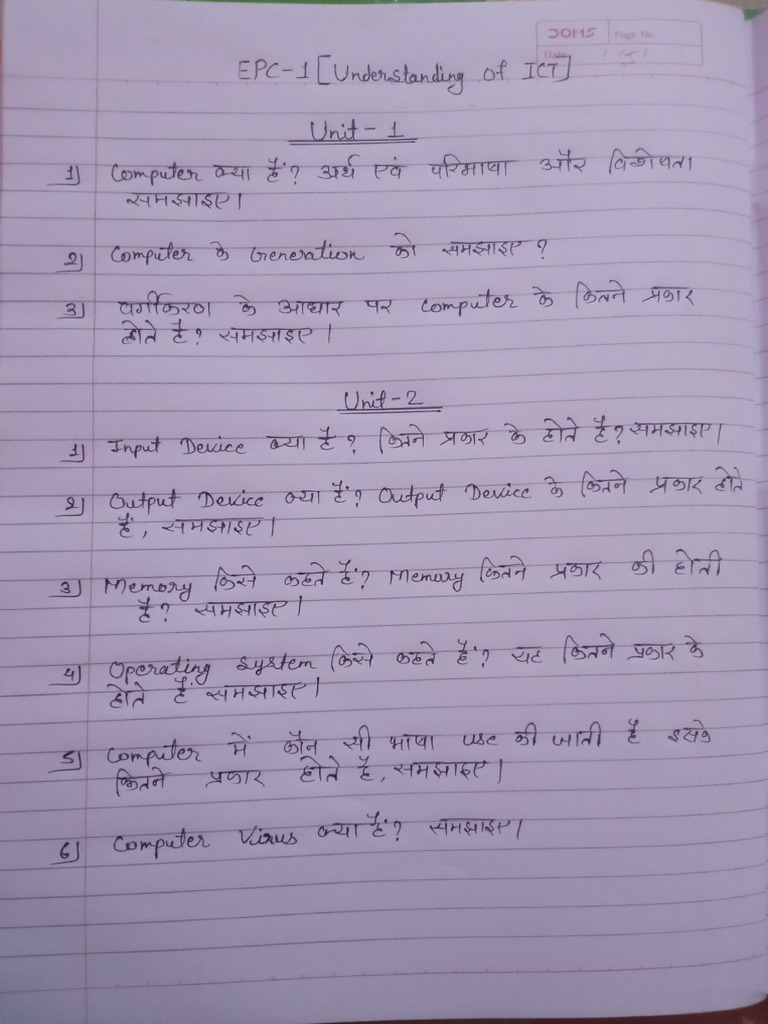 DOMS Page No.
Date / /
EPC-1 [Understanding of ICT]
Unit - 1
1) Computer क्या हैं? अर्थ एवं परिभाषा और विशेषता
समझाइए।
2) Computer के Generation को समझाइए ?
3) वर्गीकरण के आधार पर Computer के कितने प्रकार
होते है? समझाइए।
Unit-2
1) Input Device क्या है? कितने प्रकार के होते है? समझाइए।
2) Output Device क्या हैं? Output Device के कितने प्रकार होते
हैं, समझाइए।
3) Memory किसे कहते हैं? Memory कितने प्रकार की होती
है? समझाइए।
4) Operating System किसे कहते हैं? यह कितने प्रकार के
होते हैं समझाइए।
5) Computer में कौन सी भाषा use की जाती है इसके
कितने प्रकार होते है, समझाइए।
6) Computer Virus क्या हैं? समझाइए।